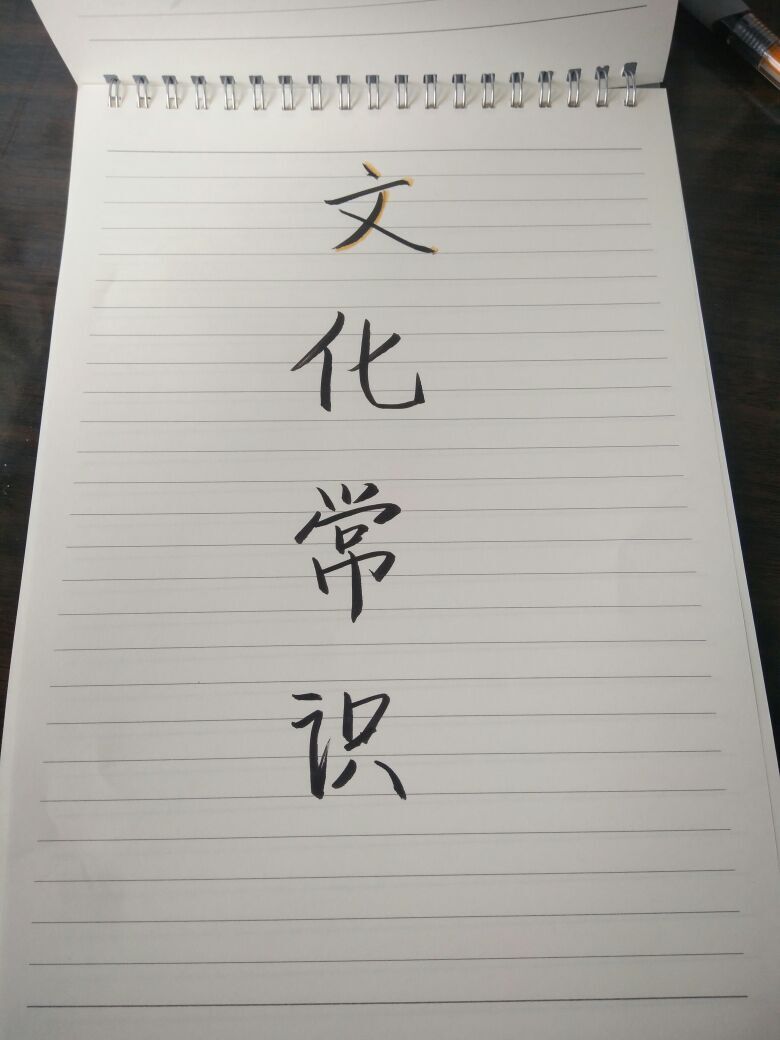 文化常识